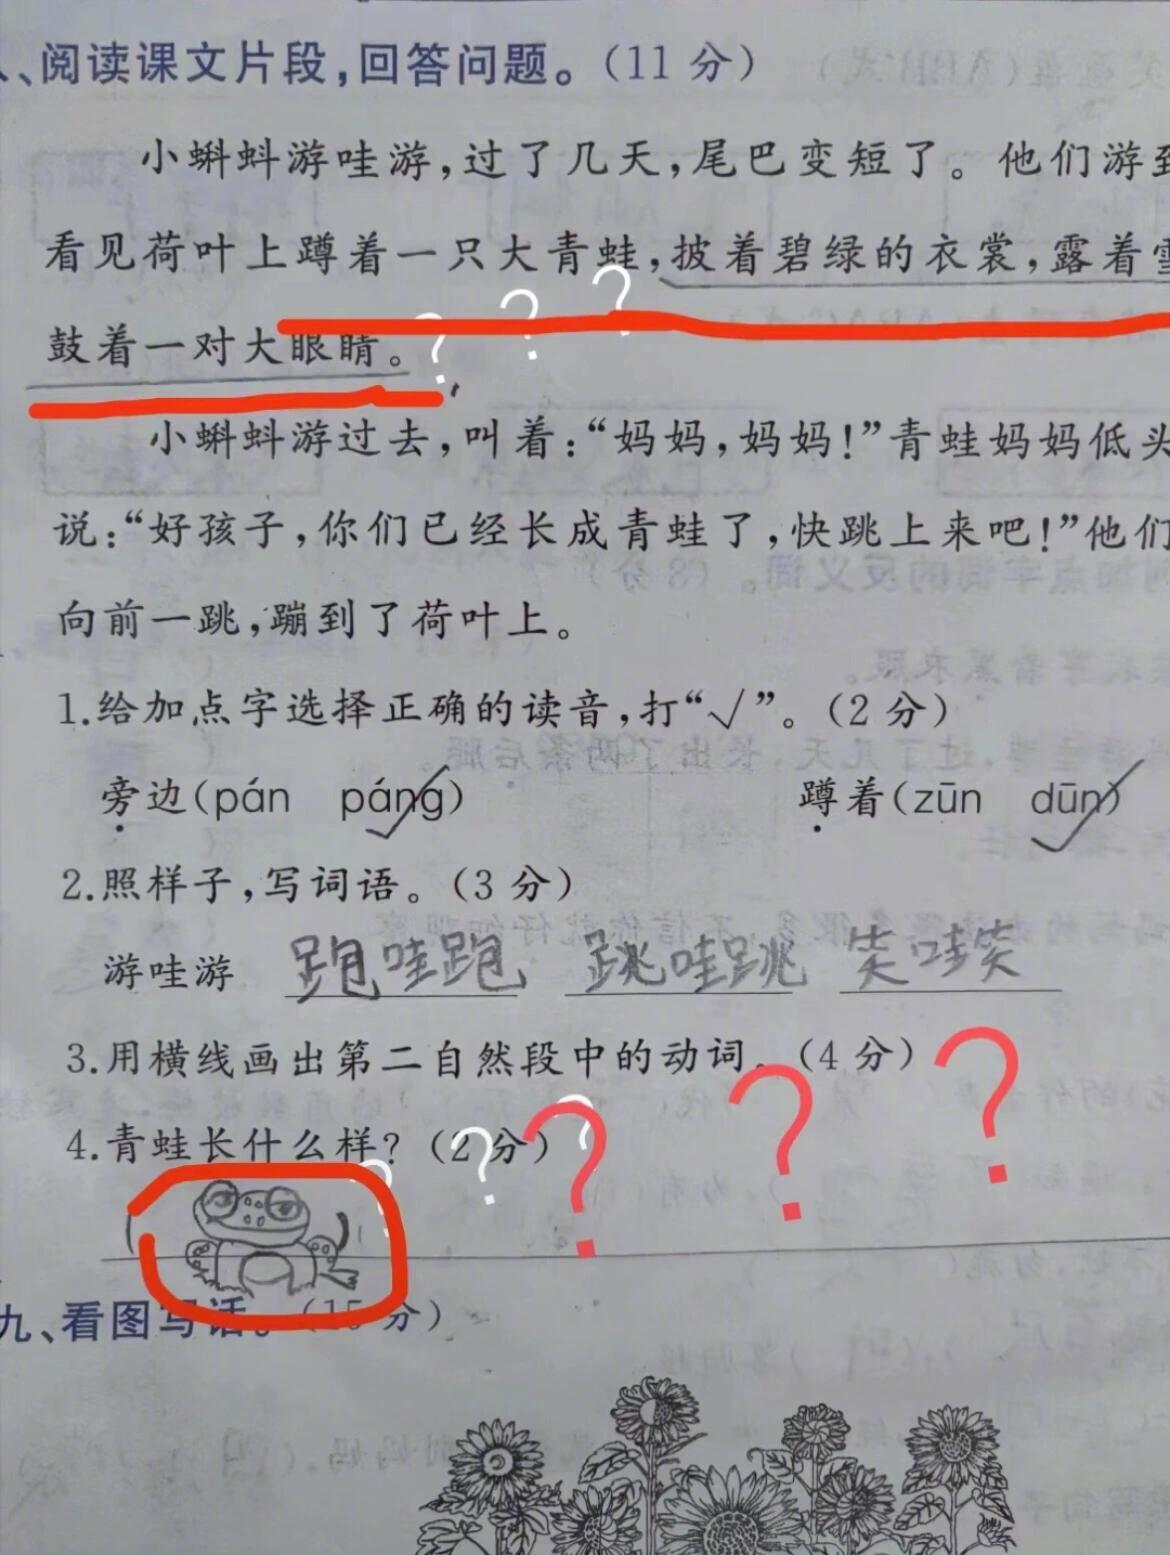 、阅读课文片段，回答问题。（11 分）
小蝌蚪游哇游，过了几天，尾巴变短了。他们游到
看见荷叶上蹲着一只大青蛙，披着碧绿的衣裳，露着雪
鼓着一对大眼睛。
小蝌蚪游过去，叫着：“妈妈，妈妈！”青蛙妈妈低头
说：“好孩子，你们已经长成青蛙了，快跳上来吧！”他们
向前一跳，蹦到了荷叶上。
1.给加点字选择正确的读音，打“√”。（2 分）
旁边（pán páng） 蹲着（zūn dūn）
2.照样子，写词语。（3 分）
游哇游 跑哇跑 跳哇跳 笑哇笑
3.用横线画出第二自然段中的动词。（4 分）
4.青蛙长什么样？（2 分）
九、看图写话。（15 分）
？ ？ ？
？ ？ ？
？ ？ ？